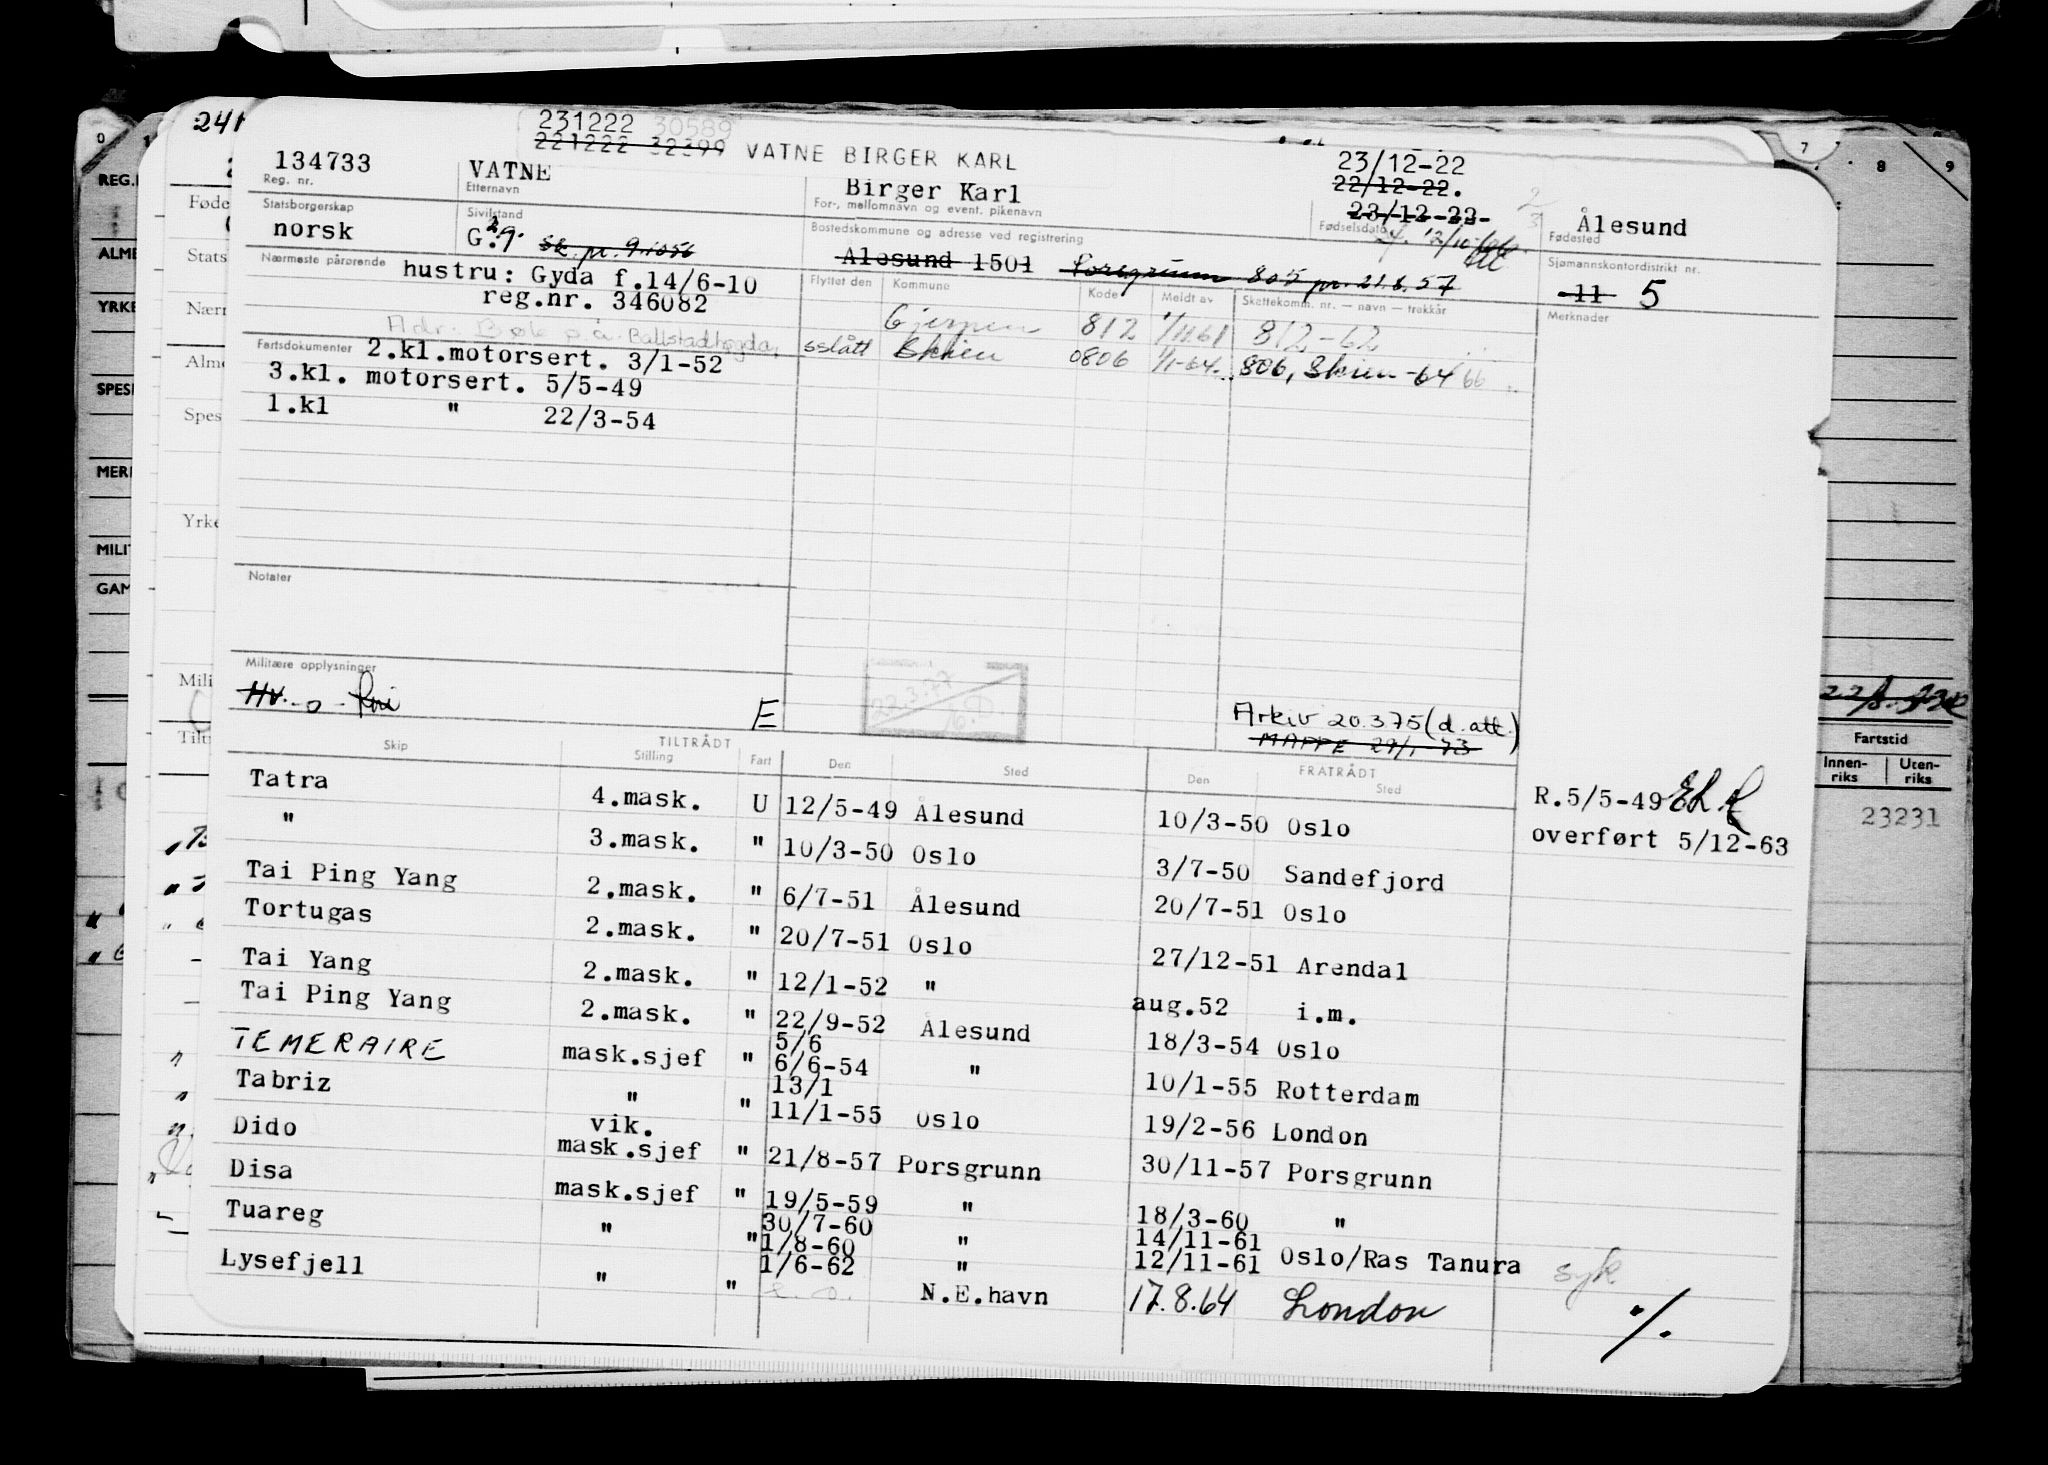 241
231222 30589
221222 32399 VATNE BIRGER KARL
134733 VATNE Birger Karl 23/12-22
22/12-22.
23/12-22- Ålesund
Reg. nr. Etternavn For-, mellomnavn og event. pikenavn Fødselsdato Fødested
Statsborgerskap Sivilstand Bostedskommune og adresse ved registrering Sjømannskontordistrikt nr.
norsk G. Ålesund 1501 Porsgrunn 805 pr. 21.8.57 11 5
Nærmeste pårørende hustru: Gyda f.14/6-10
reg.nr. 346082
Flyttet den Kommune Kode Meldt av Skattekomm. nr. — navn — trekkår Merknader
Gjerpen 812 1/11.61 812-62
sslått Skien 0806 1/1-64. 806, Skien -64 66
Adr: Bøle p.a. Ballstadhøgda,
Fartsdokumenter 2.kl.motorsert. 3/1-52
3.kl. motorsert. 5/5-49
1.kl " 22/3-54
Notater
Militære opplysninger
HV.
E
22.3.77
Arkiv 20.375 (d.att.)
MAPPE 29/1 73
Skip TILTRÅDT Stilling Fart Den Sted FRATRÅDT Den Sted
Tatra 4.mask. U 12/5-49 Ålesund 10/3-50 Oslo R.5/5-49
" 3.mask. " 10/3-50 Oslo 3/7-50 Sandefjord overført 5/12-63
Tai Ping Yang 2.mask. " 6/7-51 Ålesund 20/7-51 Oslo
Tortugas 2.mask. " 20/7-51 Oslo 27/12-51 Arendal
Tai Yang 2.mask. " 12/1-52 " aug.52 i.m.
Tai Ping Yang 2.mask. " 22/9-52 Ålesund 18/3-54 Oslo
TEMERAIRE mask.sjef " 5/6
6/6-54 " 10/1-55 Rotterdam
Tabriz " " 13/1
11/1-55 Oslo 19/2-56 London
Dido vik.
mask.sjef " 21/8-57 Porsgrunn 30/11-57 Porsgrunn
Disa mask.sjef " 19/5-59 " 18/3-60 "
Tuareg " " 30/7-60
1/8-60 " 14/11-61
12/11-61 Oslo/Ras Tanura syk
Lysefjell " " 1/6-62 "
N.E.havn 17.8.64 London
%
0 7 8 9
REG.
ALME
YRKE
SPESI
MER
MILI
GAM
Føde
Stats
Nær
Alme
Spes
Yrke
Mili
Tilt
Fartstid
Innen-
riks Uten-
riks
23231